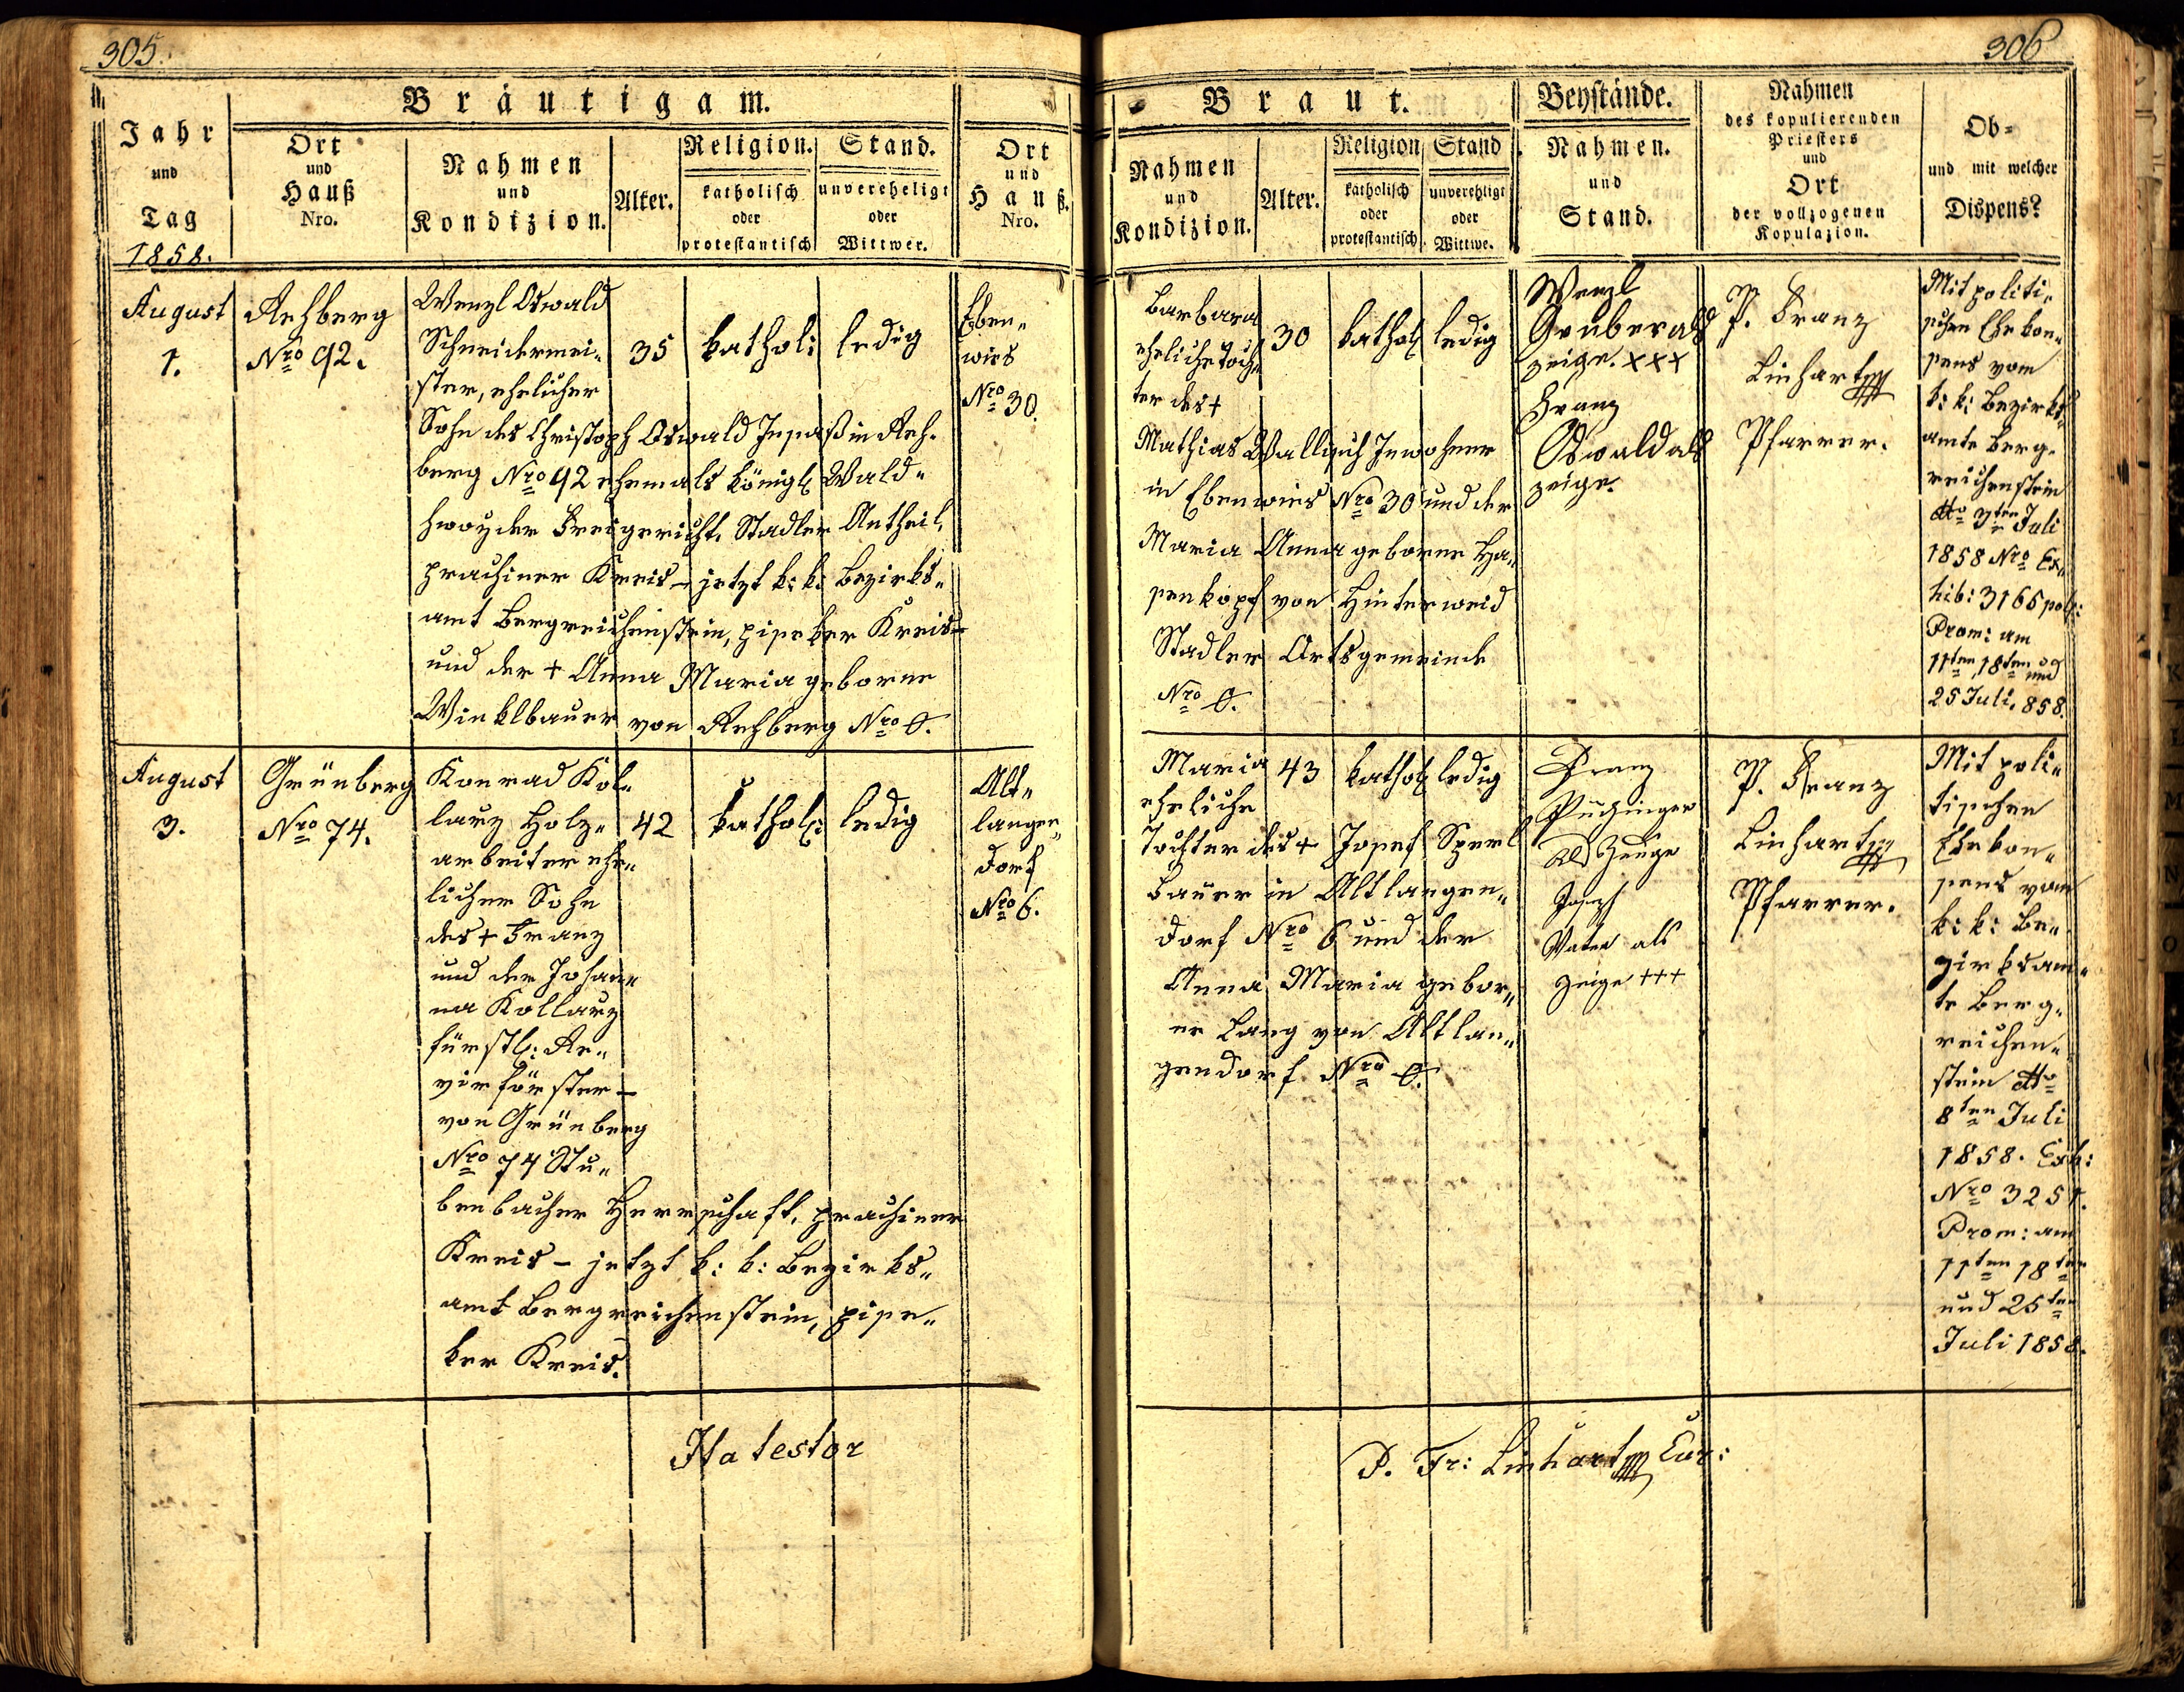 305.
Bräutigam.
Jahr
und
Tag
1858.
Ort
und
Hauß
Nro.
Nahmen
und
Kondizion.
Alter.
Religion.
katholisch
oder
protestantisch
Stand.
unvereheligt
oder
Wittwer.
Ort
und
Hauß.
Nro.
August
1.
Rehberg
Nro 92.
Wenzl Oswald
Schneidermei„
ster, ehelicher
Sohn des Christoph Oswald Insaß in Reh„
berg Nro 92 ehemals königl. Wald„
hwozder Freigericht, Stadler Antheil,
prachiner Kreis – jetzt k: k: Bezirks„
amt Bergreichenstein, piseker Kreis –
und der + Anna Maria geborne
Winklbauer von Rehberg Nro 0.
35
kathol:
ledig
Eben„
wies
Nro 30.
August
3.
Grünberg
Nro 74.
Konrad Kol„
larz Holz„
arbeiter ehe„
licher Sohn
des + Franz
und der Johan„
na Kollarz
fürstl: Re„
virförster –
von Grünberg
Nro 74 Stu„
benbacher Herrschaft, prachiner
Kreis – jetzt k: k: Bezirks„
amt Bergreichenstein, pise„
ker Kreis.
42
kathol:
ledig
Alt„
langen„
dorf
Nro 6.
Ita testor
306
Braut.
Nahmen
und
Kondizion.
Alter.
Religion
katholisch
oder
protestantisch.
Stand
unverehligt
oder
Wittwe.
Beystände.
Nahmen.
und
Stand.
Nahmen
des kopulierenden
Priesters
und
Ort
der vollzogenen
Kopulazion.
Ob-
und mit welcher
Dispens?
Barbara
eheliche Toch„
ter des +
Mathias Wallisch Inwohner
in Ebenwies Nro 30 und der
Maria Anna geborne Ha„
senkopf von Hinterwaid
Stadler Ortsgemeinde
Nro 0.
30
kathol
ledig
Wenzl
Gruber als
zeige. xxx
Franz
Oswald als
zeige.
P. Franz
Linhart
Pfarrer.
Mit politi„
schen Ehekon„
sens vom
k: k: Bezirks„
amte Berg„
reichenstein
dto 3ten Juli
1858 Nro Ex„
hib: 3165 pol:
Prom: am
11ten, 18ten und
25 Juli. 858.
Maria
eheliche
Tochter des + Josef Sperl
Bauer in Altlangen„
dorf Nro 6 und der
Anna Maria gebor„
ne Lang von Altlan„
gendorf Nro 0.
43
kathol
ledig
Franz
als Zeuge
Josef
Vater als
zeige +++
P. Franz
Linhart
Pfarrer.
Mit poli„
tischen
Ehekon„
sens vom
k: k: Be„
zirksam„
te Berg„
reichen„
stein dto
8ten Juli
1858. Exh:
Nro 3251.
Prom: am
11ten 18ten
und 25ten
Juli 1858.
P. Fr: Linhart Cur: